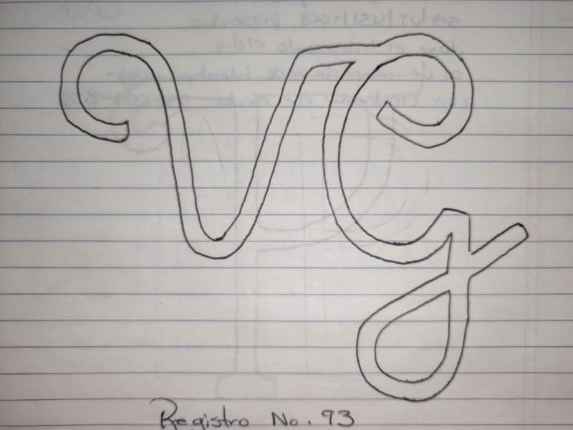 VG
Registro No. 93